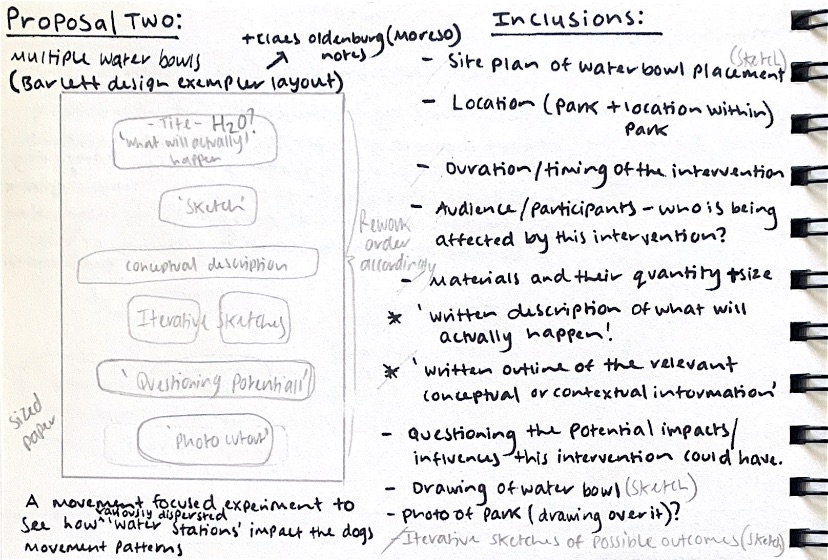 Proposal Two:
+ Claes Oldenburg (moreso)
notes
Multiple water bowls
(Barlett design exempler layout)
- Title - H2O?
'what will actually'
happen
'Sketch'
conceptual description
Iterative Sketches
'Questioning Potentials'
'Photo cutout'
Rework
order
accordingly
sized
paper
A movement focused experiment to
see how variously dispersed 'water stations' impact the dogs
movement patterns
Inclusions:
- Site plan of waterbowl placement (Sketch)
- Location (park + location within)
park
- Duration/timing of the intervention
- Audience/participants - who is being
affected by this intervention?
- Materials and their quantity + size
* 'written description of what will
actually happen!
* 'written outline of the relevant
conceptual or contextual information'
- Questioning the potential impacts/
influences this intervention could have.
- Drawing of water bowl (sketch)
- Photo of park (drawing over it)?
- Iterative sketches of possible outcomes (sketch)